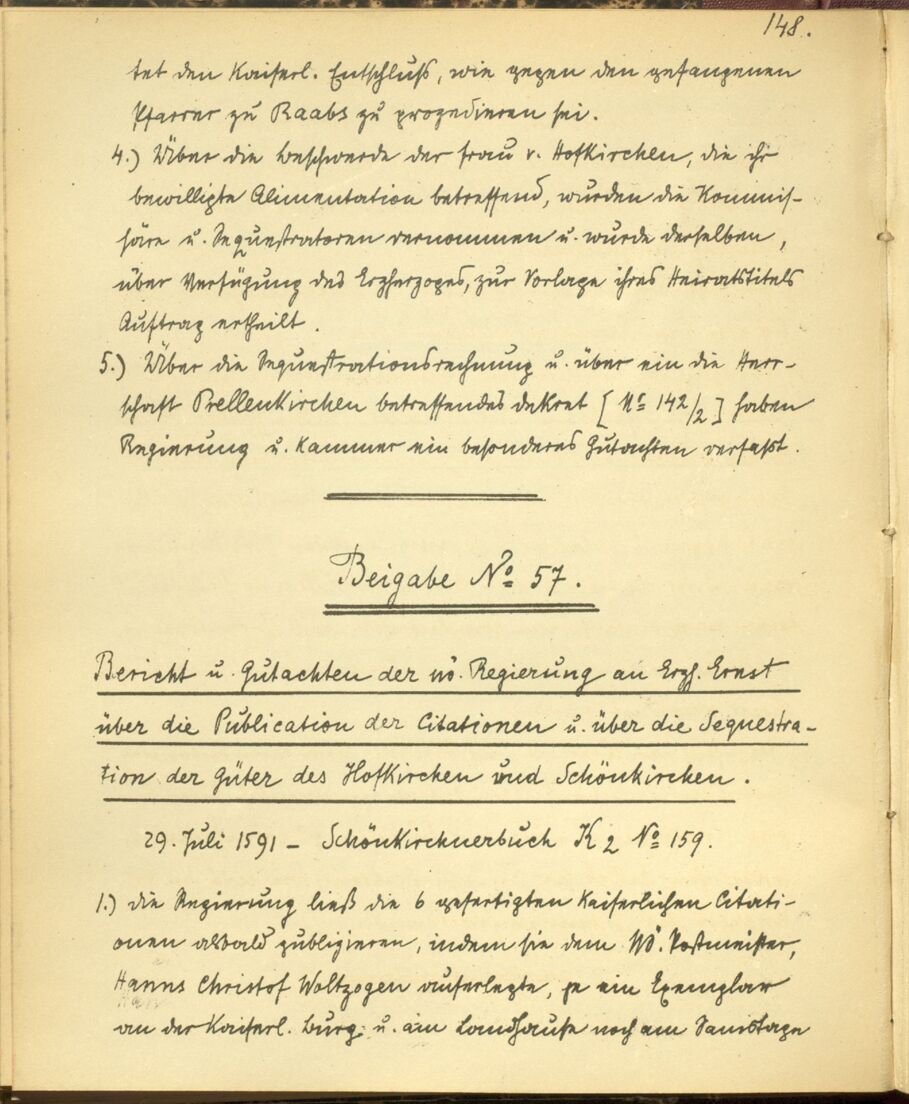 148.
tet den Kaiserl. Entschluß, wie gegen den gefangenen
Pfarrer zu Raabs zu prozedieren sei.
4.) Über die Beschwerde der Frau v. Hofkirchen, die ihr
bewilligte Alimentation betreffend, wurden die Kommis-
säre u. Sequestratoren vernommen u. wurde derselben,
über Verfügung des Erzherzoges, zur Vorlage ihres Heiratstitels
Auftrag ertheilt.
5.) Über die Sequestrationsrechnung u. über ein die Herr-
schaft Prellenkirchen betreffendes Dekret [Nr 142/2] haben
Regierung u. Kammer ein besonderes Gutachten verfaßt.
Beigabe No 57.
Bericht u. Gutachten der nö. Regierung an Erzh. Ernst
über die Publication der Citationen u. über die Sequestra-
tion der Güter des Hofkirchen und Schönkirchen.
29. Juli 1591 – Schönkirchnerbuch K 2 No 159.
1.) Die Regierung ließ die 6 gefertigten Kaiserlichen Citati-
onen alsbald publizieren, indem sie dem NÖ. Postmeister,
Hanns Christof Woltzogen auferlegte, je ein Exemplar
an der Kaiserl. Burg u. am Landhause noch am Samstage